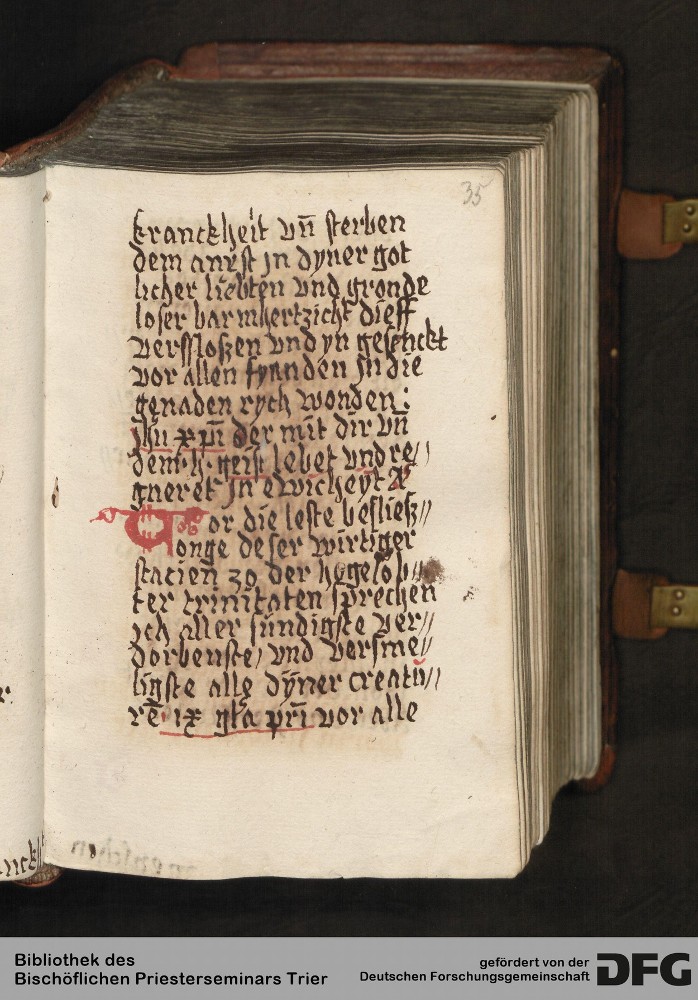 35
kranckheit vn̄ sterben
dem anxst jn dyner got
licher liebten vnd gronde
loser barmhertzicht dieff
verssloßen vnd yn gesenckt
vor allen fyanden jn die
genaden rych wonden :
jh̄u xp̄i der mit dir vn̄
dem · h · geist lebet vnd re//
gneret jn ewicheyt
or die leste besliesz//
onge deser wirtiger
stacien zo der hogelob//
ter trinitaten sprechen
ich aller sundigste ver//
dorbenste / vnd versme//
ligste alle dÿner creatu//
rē ix gl̄a pr̄i vor alle
Bibliothek des
Bischöflichen Priesterseminars Trier
gefördert von der
Deutschen Forschungsgemeinschaft
DFG